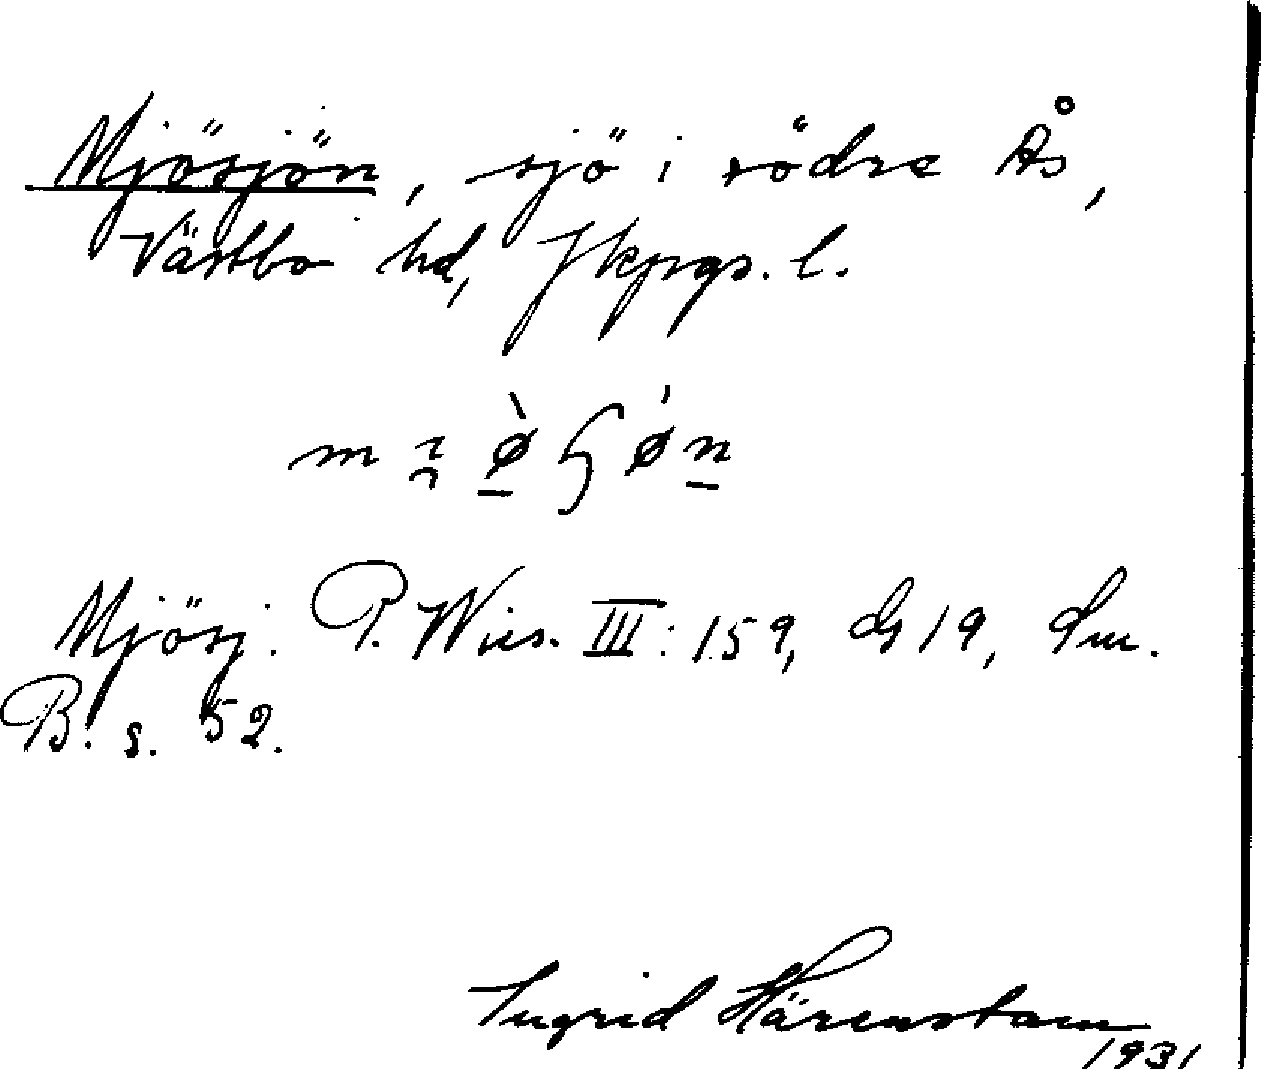 Mjösjön, sjö i södra Ås,
Västbo hd, Jkpgs. l.
Mjösj. P. Wies. III: 159, G 19, Sm.
B. s. 52.
Ingrid Härenstam
1931